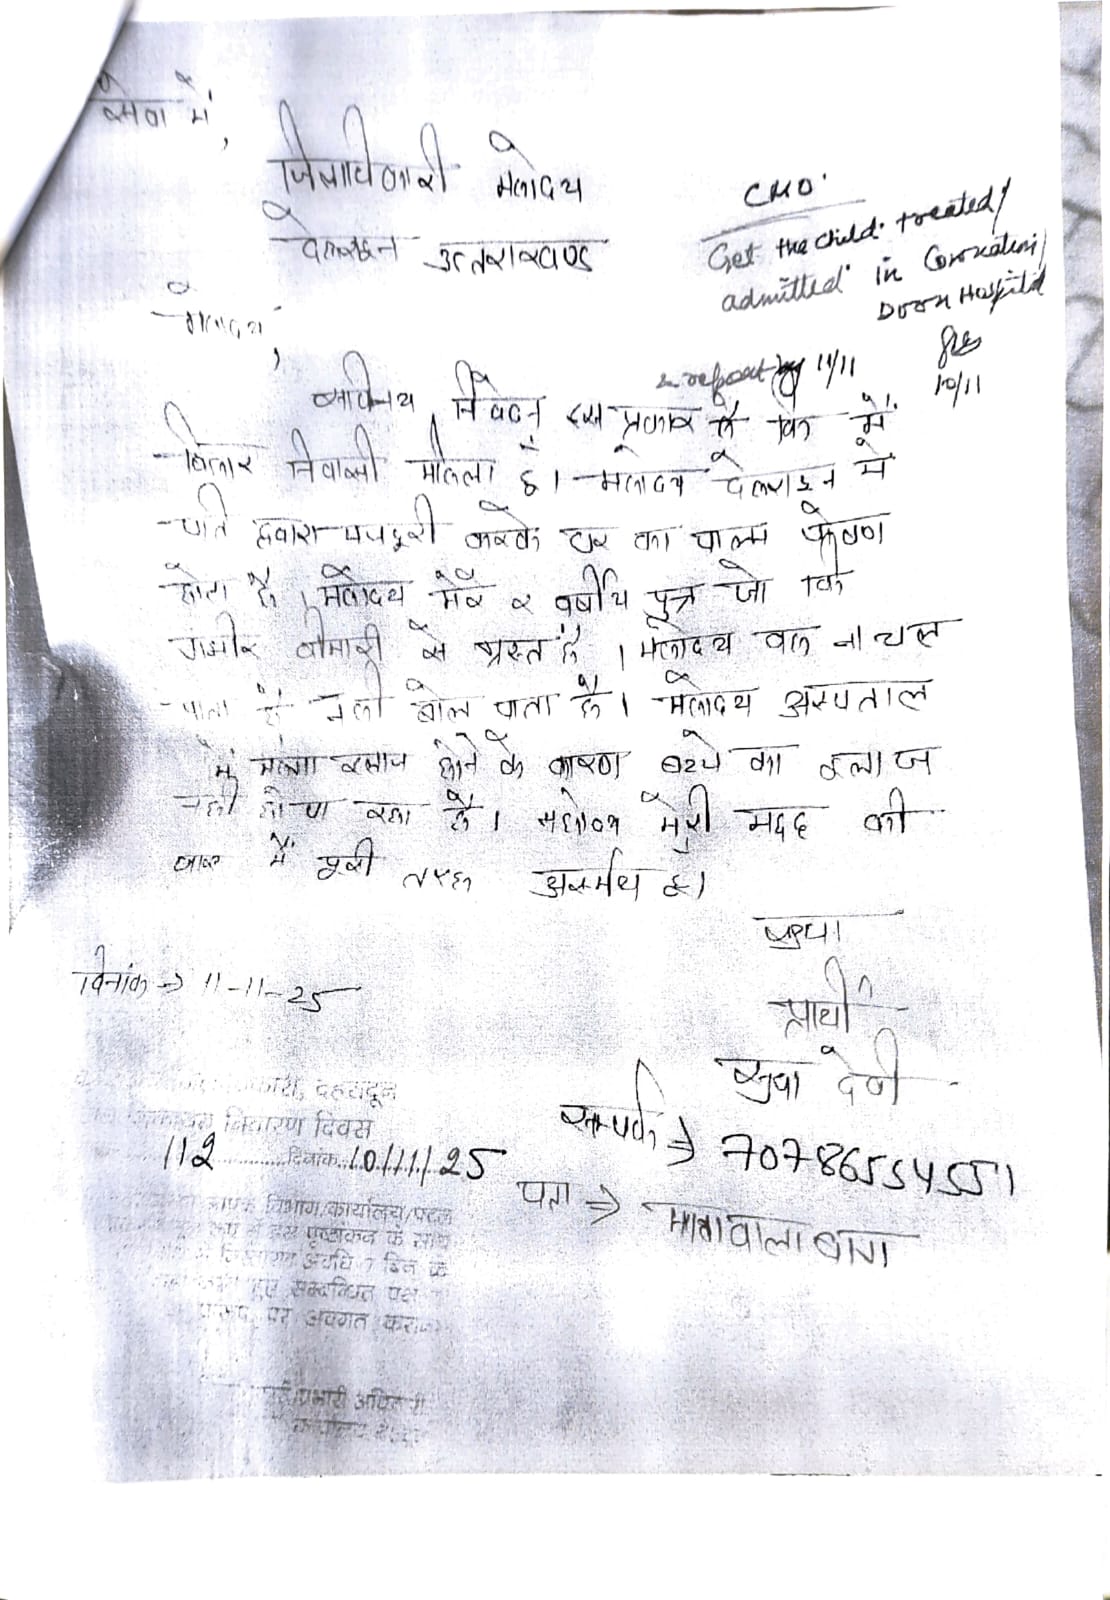 सेवा में,
जिलाधिकारी महोदय
देहरादून उत्तराखण्ड
CMO.
Get the child treated/
admitted in Coronation/
Doon Hospital
& report by 11/11
10/11
महोदय,
सविनय निवेदन इस प्रकार है कि मैं
बिहार निवासी महिला हूँ। महोदय देहरादून में
पति द्वारा मजदूरी करके घर का पालन पोषण
होता है। महोदय मेरे २ वर्षीय पुत्र जो कि
गंभीर बीमारी से ग्रस्त है। महोदय वह ना चल
पाता है नही बोल पाता है। महोदय अस्पताल
में महंगा इलाज होने के कारण बच्चे का इलाज
नही हो पा रहा है। महोदय मेरी मदद की
जाए मैं पूरी तरह असर्मथ हूं।
प्रार्थी
देवी
दिनांक → 11-11-25
सम्पर्क → 70786554551
पता → मातावाला बाग
देहरादून
निवारण दिवस
112 दिनांक 10/11/25
विभाग/कार्यालय/पटल
इस पृष्ठांकन के साथ
अवधि 7 दिन के
सम्बन्धित पक्ष
पर अवगत
प्रभारी अधिकारी